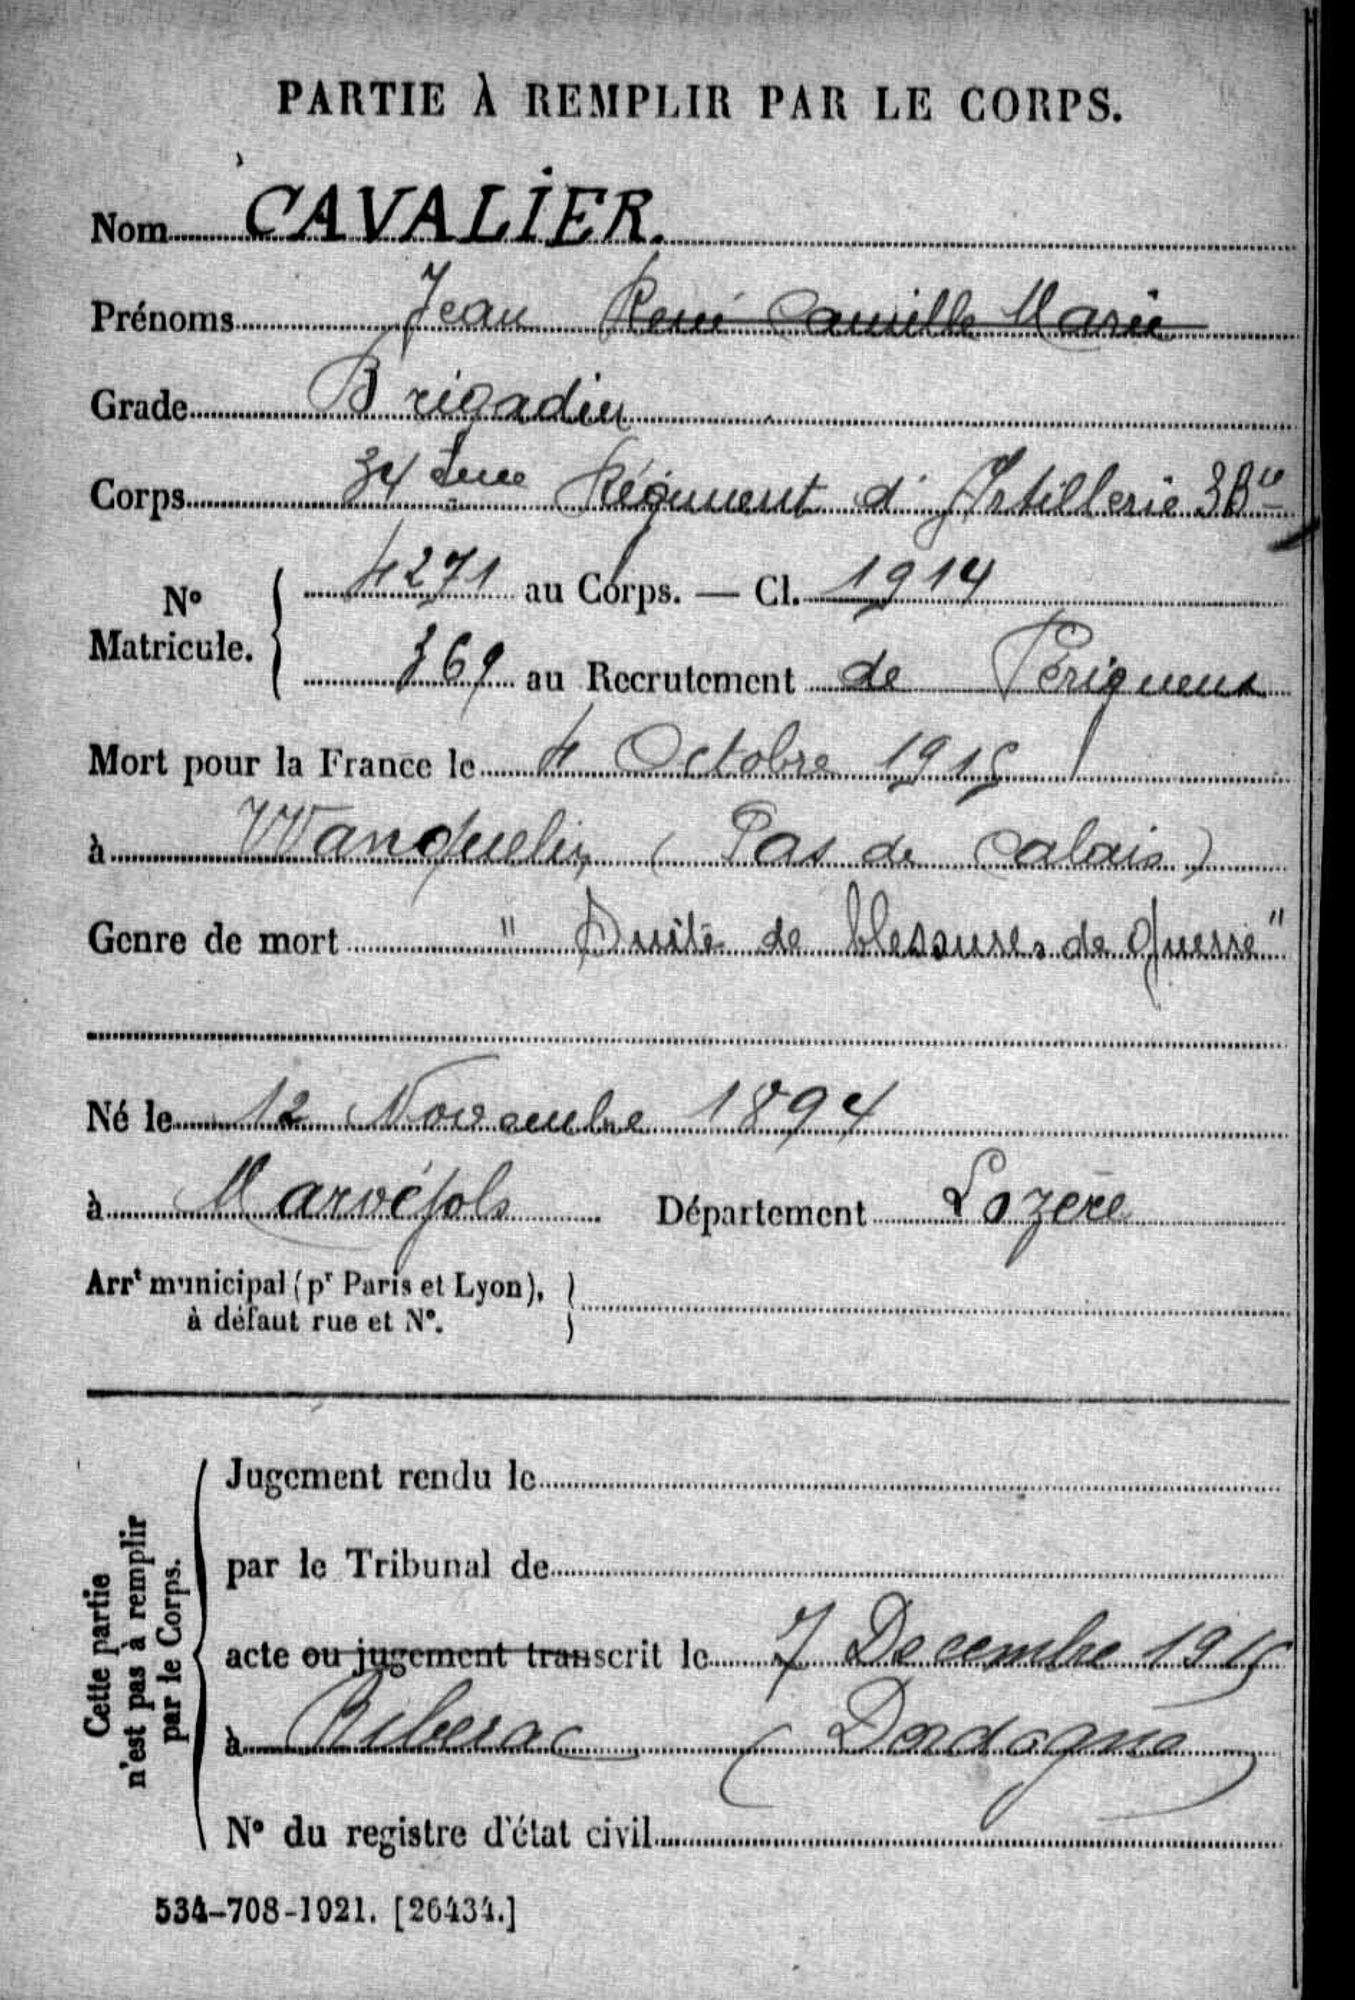 PARTIE À REMPLIR PAR LE CORPS.
Nom CAVALIER.
Prénoms Jean René Camille Marie
Grade Brigadier
Corps 34ème Régiment d'Artillerie 3Bie
N° Matricule. 4271 au Corps. — Cl. 1914
369 au Recrutement de Périgueux
Mort pour la France le 4 Octobre 1915
à Wanquelin (Pas de Calais)
Genre de mort "Suite de blessures de guerre"
Né le 12 Novembre 1894
à Marvéjols Département Lozère
Arrt municipal (pr Paris et Lyon), à défaut rue et N°.
Cette partie n'est pas à remplir par le Corps.
Jugement rendu le
par le Tribunal de
acte ou jugement transcrit le 7 Decembre 1915
à Riberac (Dordogne)
N° du registre d'état civil
534-708-1921. [26434.]